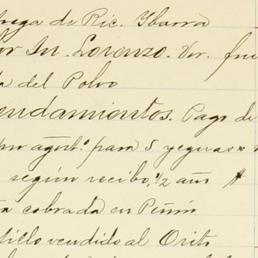 trega de Ric. Ybarra
or Sn. Lorenzo. Ver. fru
a del Polvo
endamientos. Pago de
agost.º para 5 yeguas
según recibo, 1/2 año A
a cobrada en Peñón
tillo vendido al Orito